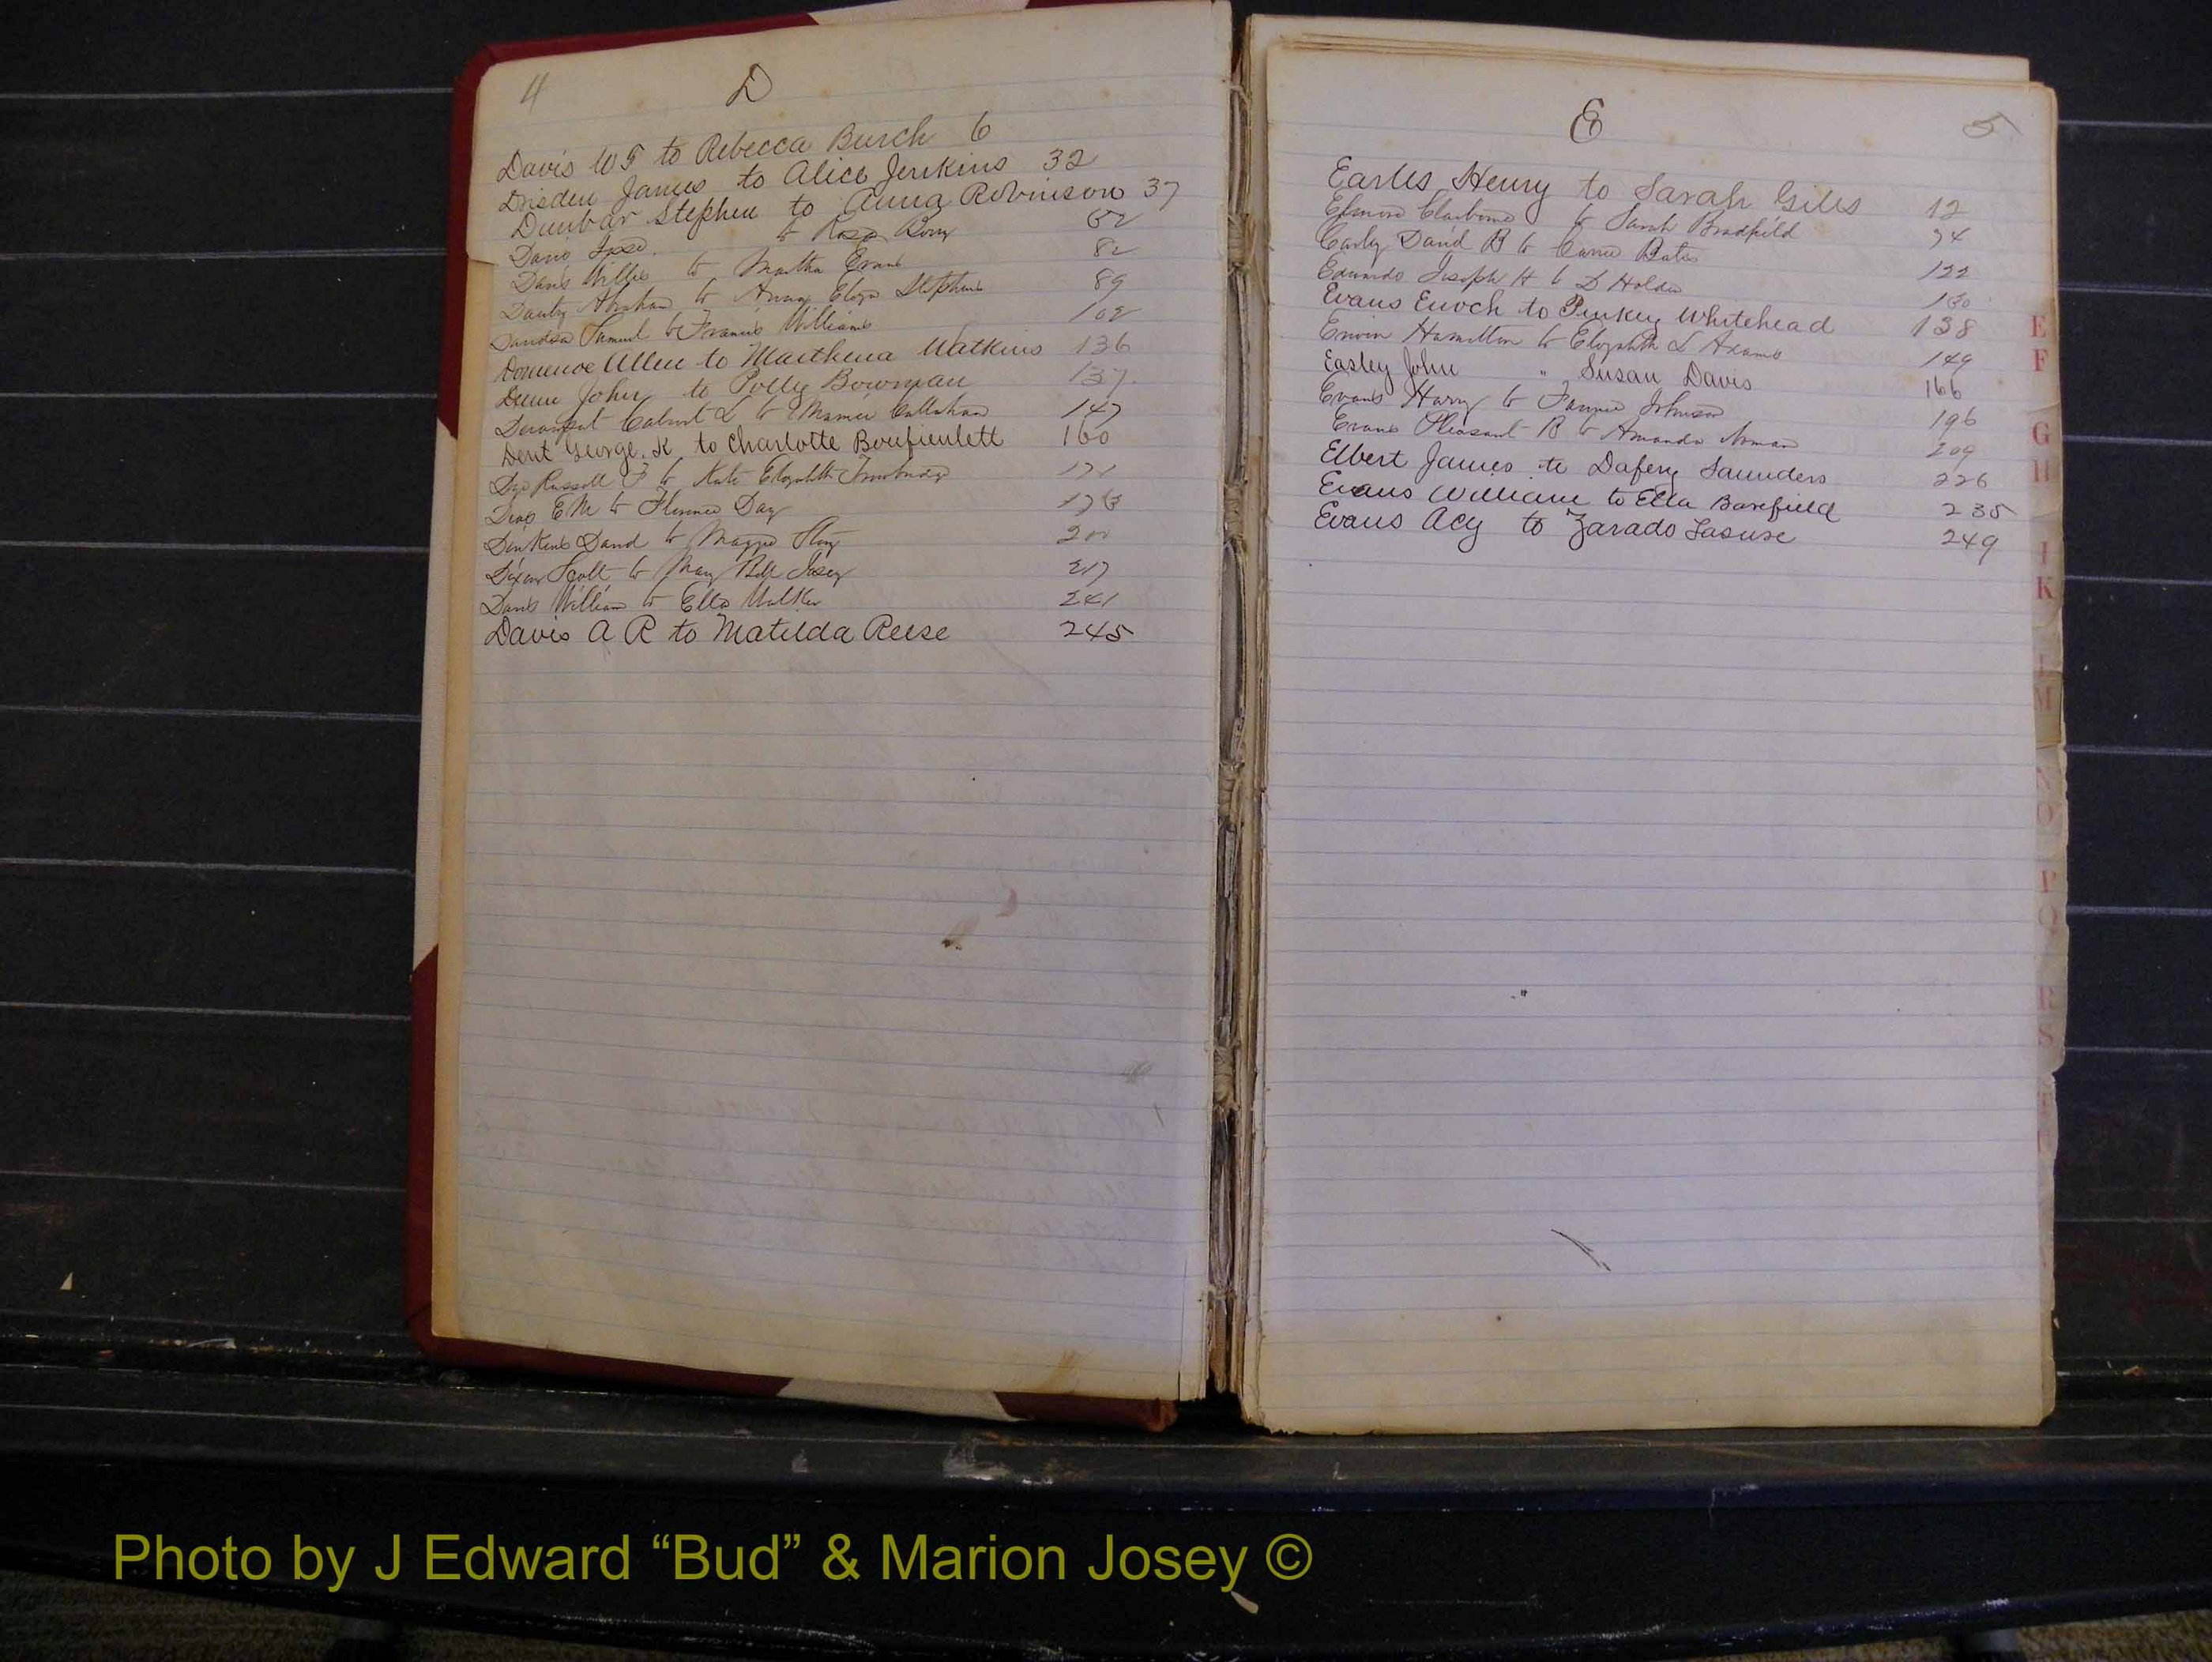 4
D
Davis W F to Rebecca Burch 6
Drisden James to Alice Jenkins 32
Dunbar Stephen to Anna Robinson 37
Davis to Rosa
Davis Willis to Martha Evans 82
Abraham to Anna Eliza Stephens 89
Samuel to Francis Williams 102
Allen to Watkins 136
Dunn John to Polly Bowman 137
Calvert L to Mamie Callahan 147
Dent George. K. to Charlotte 160
Russell F to Kate Elizabeth 171
E M to Florence Day
David to 200
Scott to May Bell Josey 217
Davis William to Ella Walker 241
Davis A R to Matilda Reese 245
E
5
Earles Henry to Sarah Giles 12
Elmore Claiborne to Sarah Bradfield
David B to Carrie Bates
Edwards Joseph H to D Holden 122
Evans Enoch to Pinkey Whitehead 130
Erwin Hamilton to Elizabeth L Adams 138
Easley John " Susan Davis 149
Evans Harry to Fannie Johnson 166
Evans Pleasant B to Amanda 196
Elbert James to Saunders 209
Evans William to Ella Barefield 226
Evans Acy to Zarado 235
249
E
F
G
H
I
K
L
M
N
O
P
Q
R
S
Photo by J Edward “Bud” & Marion Josey ©